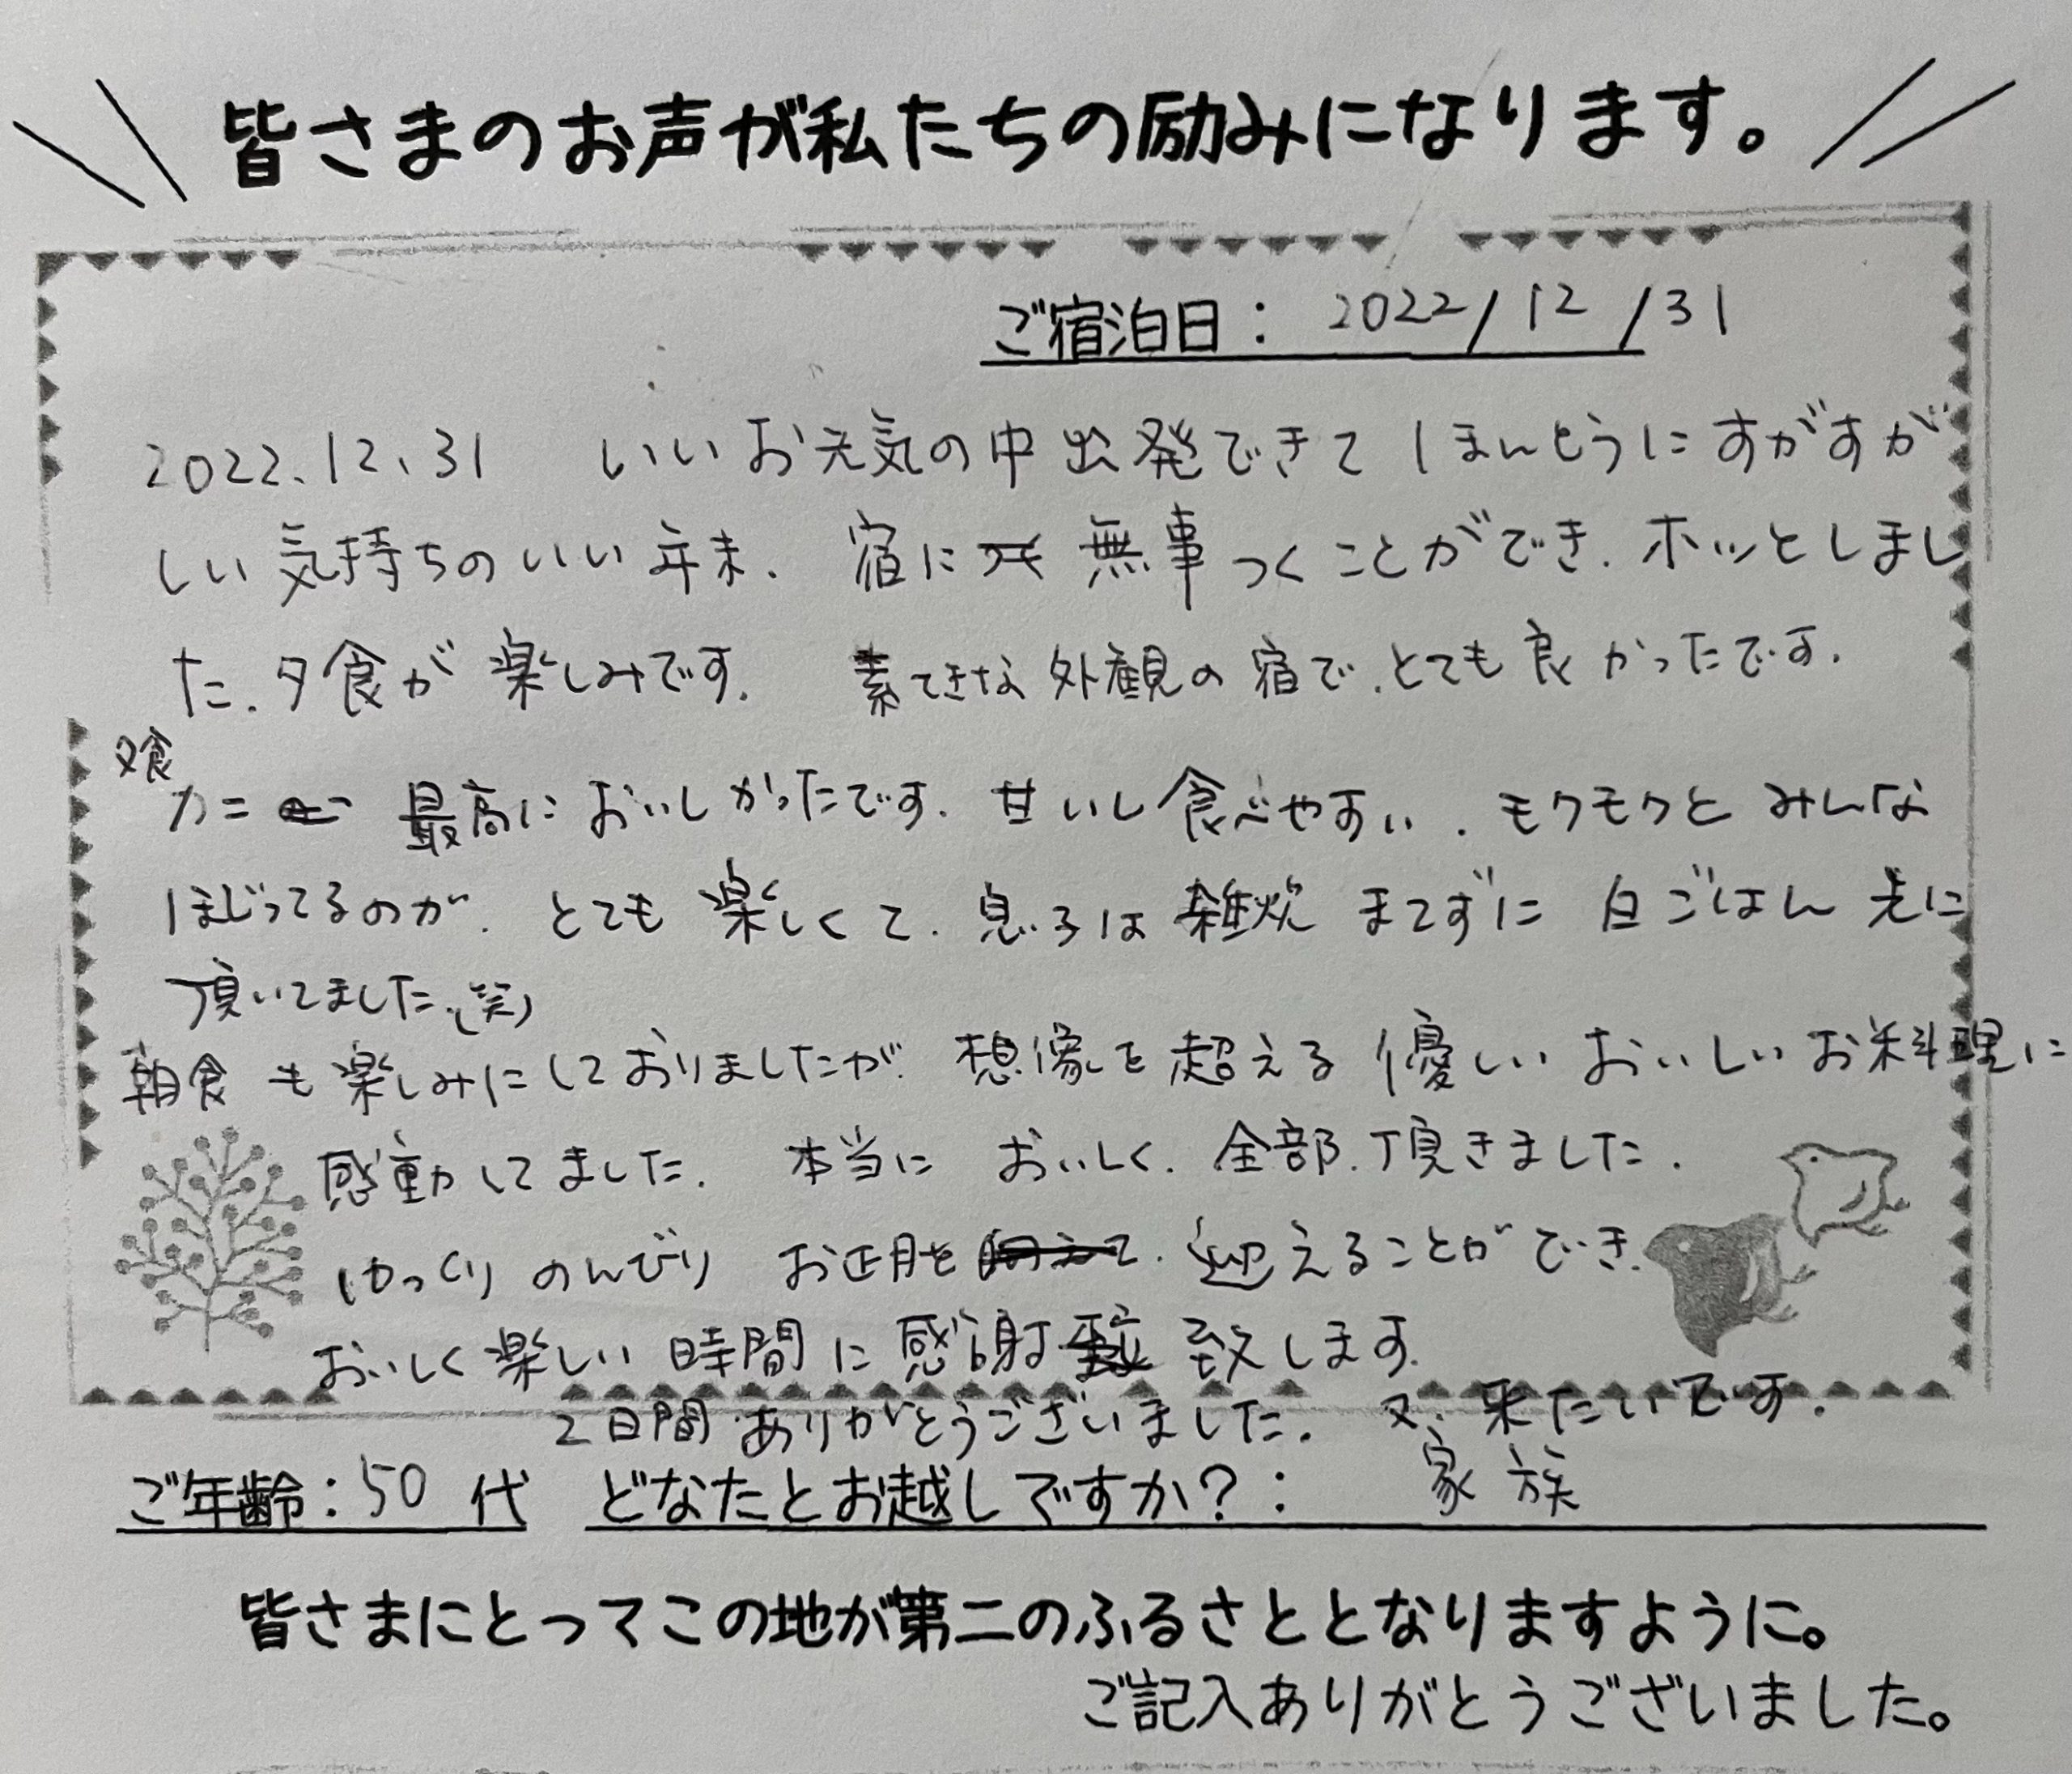 皆さまのお声が私たちの励みになります。
ご宿泊日: 2022/12/31
2022.12.31 いいお元気の中出発できてほんとうにすがすが
しい気持ちのいい年末. 宿に無事つくことができ. ホッとしまし
た. 夕食が楽しみです. 素てきな外観の宿で. とても良かったです.
夕食
カニ 最高においしかったです. 甘いし食べやすい. モクモクとみんな
ほじってるのが. とても楽しくて. 息子は雑炊まてずに白ごはん先に
頂いてました.(笑)
朝食も楽しみにしておりましたが. 想像を超える優しいおいしいお料理に
感動してました. 本当においしく. 全部. 頂きました.
ゆっくりのんびりお正月を 迎えることができ.
おいしく楽しい時間に感謝 致します.
2日間ありがとうございました. 又. 来たいです.
ご年齢: 50代 どなたとお越しですか?: 家族
皆さまにとってこの地が第二のふるさととなりますように。
ご記入ありがとうございました。